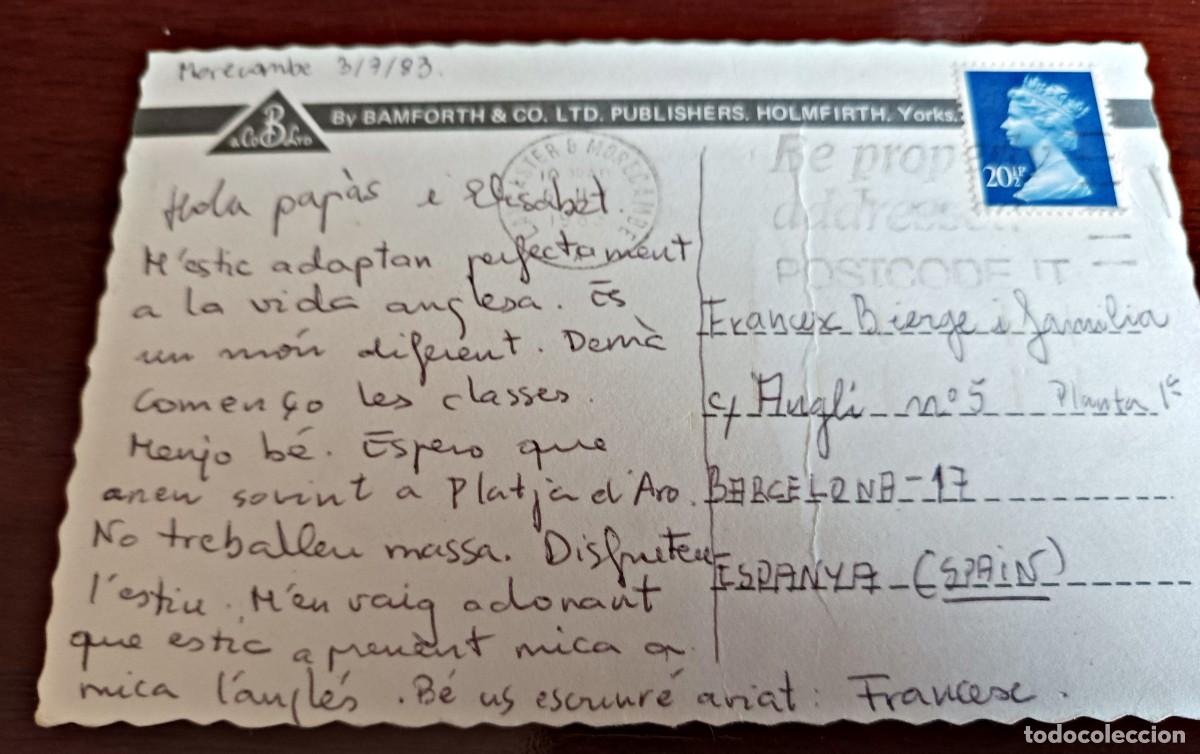 Morecambe 3/7/83.
B
aCoBLro
By BAMFORTH & CO. LTD. PUBLISHERS. HOLMFIRTH. Yorks.
20½P
& MORECAMBE
Be
addresse
POSTCODE IT
Hola papàs i Elisabet.
M'estic adaptan perfectament
a la vida anglesa. És
un món diferent. Demà
començo les classes.
Menjo bé. Espero que
aneu sovint a Platja d'Aro.
No treballeu massa. Disfruteu
l'estiu. M'en vaig adonant
que estic aprenent mica a
mica l'anglés. Bé us escriuré aviat: Francesc.
Francesc Bierge i família
c/ Anglí nº 5 Planta 1ª
BARCELONA-17
ESPANYA (SPAIN)
todocoleccion